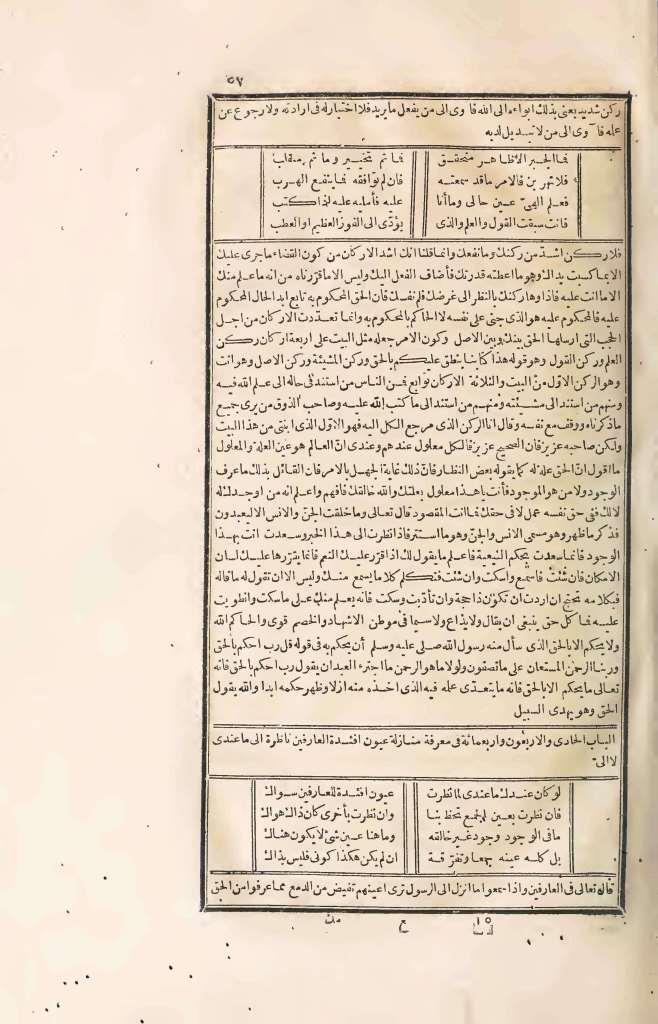 ٥٧
ركن شديد يعنى بذلك ايواءه الى الله فاوى الى من يفعل مايريد فلا اختبارله فى ارادته ولا رجوع عن
علمه فآوى الى من لا تبديل لديه
فما الجبر الا ظاهر متحقق فما ثم تخيير وما ثم منقلب
فلا تهربن فالامر ماقد سمعته فان لم نوافقه فما ينفع الهرب
فعلم الهى عين حالى وما أنا عليه فأمليه عليه لذا كتب
فانت سبقت القول والعلم والذى يؤدى الى الفوز العظيم او العطب
فلا ركن اشد من ركنك وما نفعك وانما قلنا انك اشد الاركان من كون القضاء ماجرى عليك
الا بما كسبت يداك وهو ما اعطته قدرتك فأضاف الفعل اليك وليس الا ما قررناه من انه ماعلم منك
الا ما انت عليه فاذا وهاركنك بالنظر الى غرضك فلم نفسك فان الحق المحكوم به تابع ابدا لحال المحكوم
عليه فالمحكوم عليه هو الذى جنى على نفسه لا الحاكم بالمحكوم به وانما تعددت الاركان من اجل
الحجب التى ارسلها الحق بينك وبين الاصل وكون الامر جعله مثل البيت على اربعة اركان ركن
العلم وركن القول وهو قوله هذا كتابنا ينطق عليكم بالحق وركن المشيئة وركن الاصل وهو انت
وهو الركن الاول من البيت والثلاثة الاركان توابع فمن الناس من استند فى حاله الى علم الله فيه
ومنهم من استند الى مشيئته ومنهم من استند الى ما كتب الله عليه وصاحب الذوق من يرى جميع
ماذكرناه ووقف مع نفسه وقال انا الركن الذى مرجع الكل اليه فهو الاول الذى ابتنى من هذا البيت
ولكن صاحبه عزيز فان الصحيح عزيز فالكل معلول عندهم وعندى ان العالم هو عين العلة والمعلول
ما اقول ان الحق علة له كما يقوله بعض النظار فان ذلك غاية الجهل بالامر فان القائل بذلك ماعرف
الوجود ولا من هو الموجود فأنت يا هذا معلول بعلتك والله خالقك فافهم واعلم انه من اوجدك له
لا لك ففى حق نفسه عمل لا فى حقك فما انت المقصود قال تعالى وما خلقت الجن والانس الا ليعبدون
فذكر ماظهر وهو مسمى الانس والجن وهو ما استتر فاذا نظرت الى هذا الخبر وسعدت انت بهذا
الوجود فانما سعدت بحكم التبعية فاعلم ما يقول لك اذا قرر عليك النعم فانما يقررها عليك لسان
الامكان فان شئت فاسمع واسكت وان شئت فتكلم كلاما يسمع منك وليس الا ان تقول له ما قاله
فبكلامه تحتج ان اردت ان تكون ذا حجة وان تأدبت وسكت فانه يعلم منك على ماسكت وانطويت
عليه فما كل حق ينبغى ان يقال ولا يذاع ولا سيما فى موطن الاشهاد والخصم قوى والحاكم الله
ولا يحكم الا بالحق الذى سأل منه رسول الله صلى عليه وسلم أن يحكم به فى قوله قل رب احكم بالحق
وربنا الرحمن المستعان على ما تصفون ولولا ما هو الرحمن ما اجترء العبد ان يقول رب احكم بالحق فانه
تعالى ما يحكم الا بالحق فانه ما يتعدى علمه فيه الذى اخذه منه ازلا وظهر حكمه ابدا والله يقول
الحق وهو يهدى السبيل
الباب الحادى والاربعون واربعمائة فى معرفة منازلة عيون افئدة العارفين ناظرة الى ما عندى
لا الى
لو كان عندك ما عندى لما نظرت عيون افئدة للعارفين سواك
فان نظرت بعين للجميع تحظ بنا وان نظرت بأخرى كان ذاك هواك
ما فى الوجود وجود غير خالقه وما هنا عين شئ لا يكون هناك
بل كله عينه جمعا وتفرقة ان لم يكن هكذا كونى فليس بذاك
قاله تعالى فى العارفين واذا سمعوا ما انزل الى الرسول ترى اعينهم تفيض من الدمع مما عرفوا من الحق